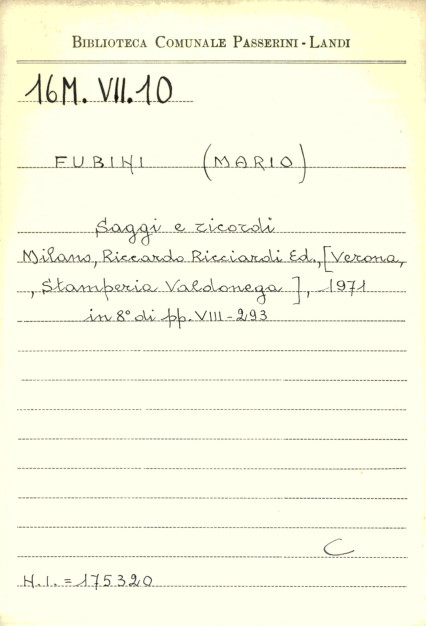 BIBLIOTECA COMUNALE PASSERINI - LANDI
16M. VII.10
FUBINI (MARIO)
Saggi e ricordi
Milano, Riccardo Ricciardi Ed., [Verona,
, Stamperia Valdonega ], 1971
in 8° di pp. VIII - 293
C
N.I. = 175320